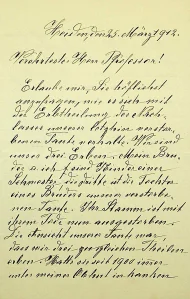 Heiden, den 25. März 1912.
Verehrtester Herr Professor!
Erlaube mir, Sie höflichst
anzufragen, wie es sich mit
der Erbteilung des Nach-
lasses unserer
Tante verhält. Wir
sind unser drei Erben. Mein Bru-
der & ich, & Kinder einer
Schwester, die die Tochter
eines Bruders unserer verstorbe-
nen Tante. Ihr Stamm ist mit
ihrem Tode nun ausgestorben.
Die Ansicht unserer Tante war,
dass wir drei zu gleichen Theilen
erben. seit 1900 immer
unter meiner Obhut in kranken